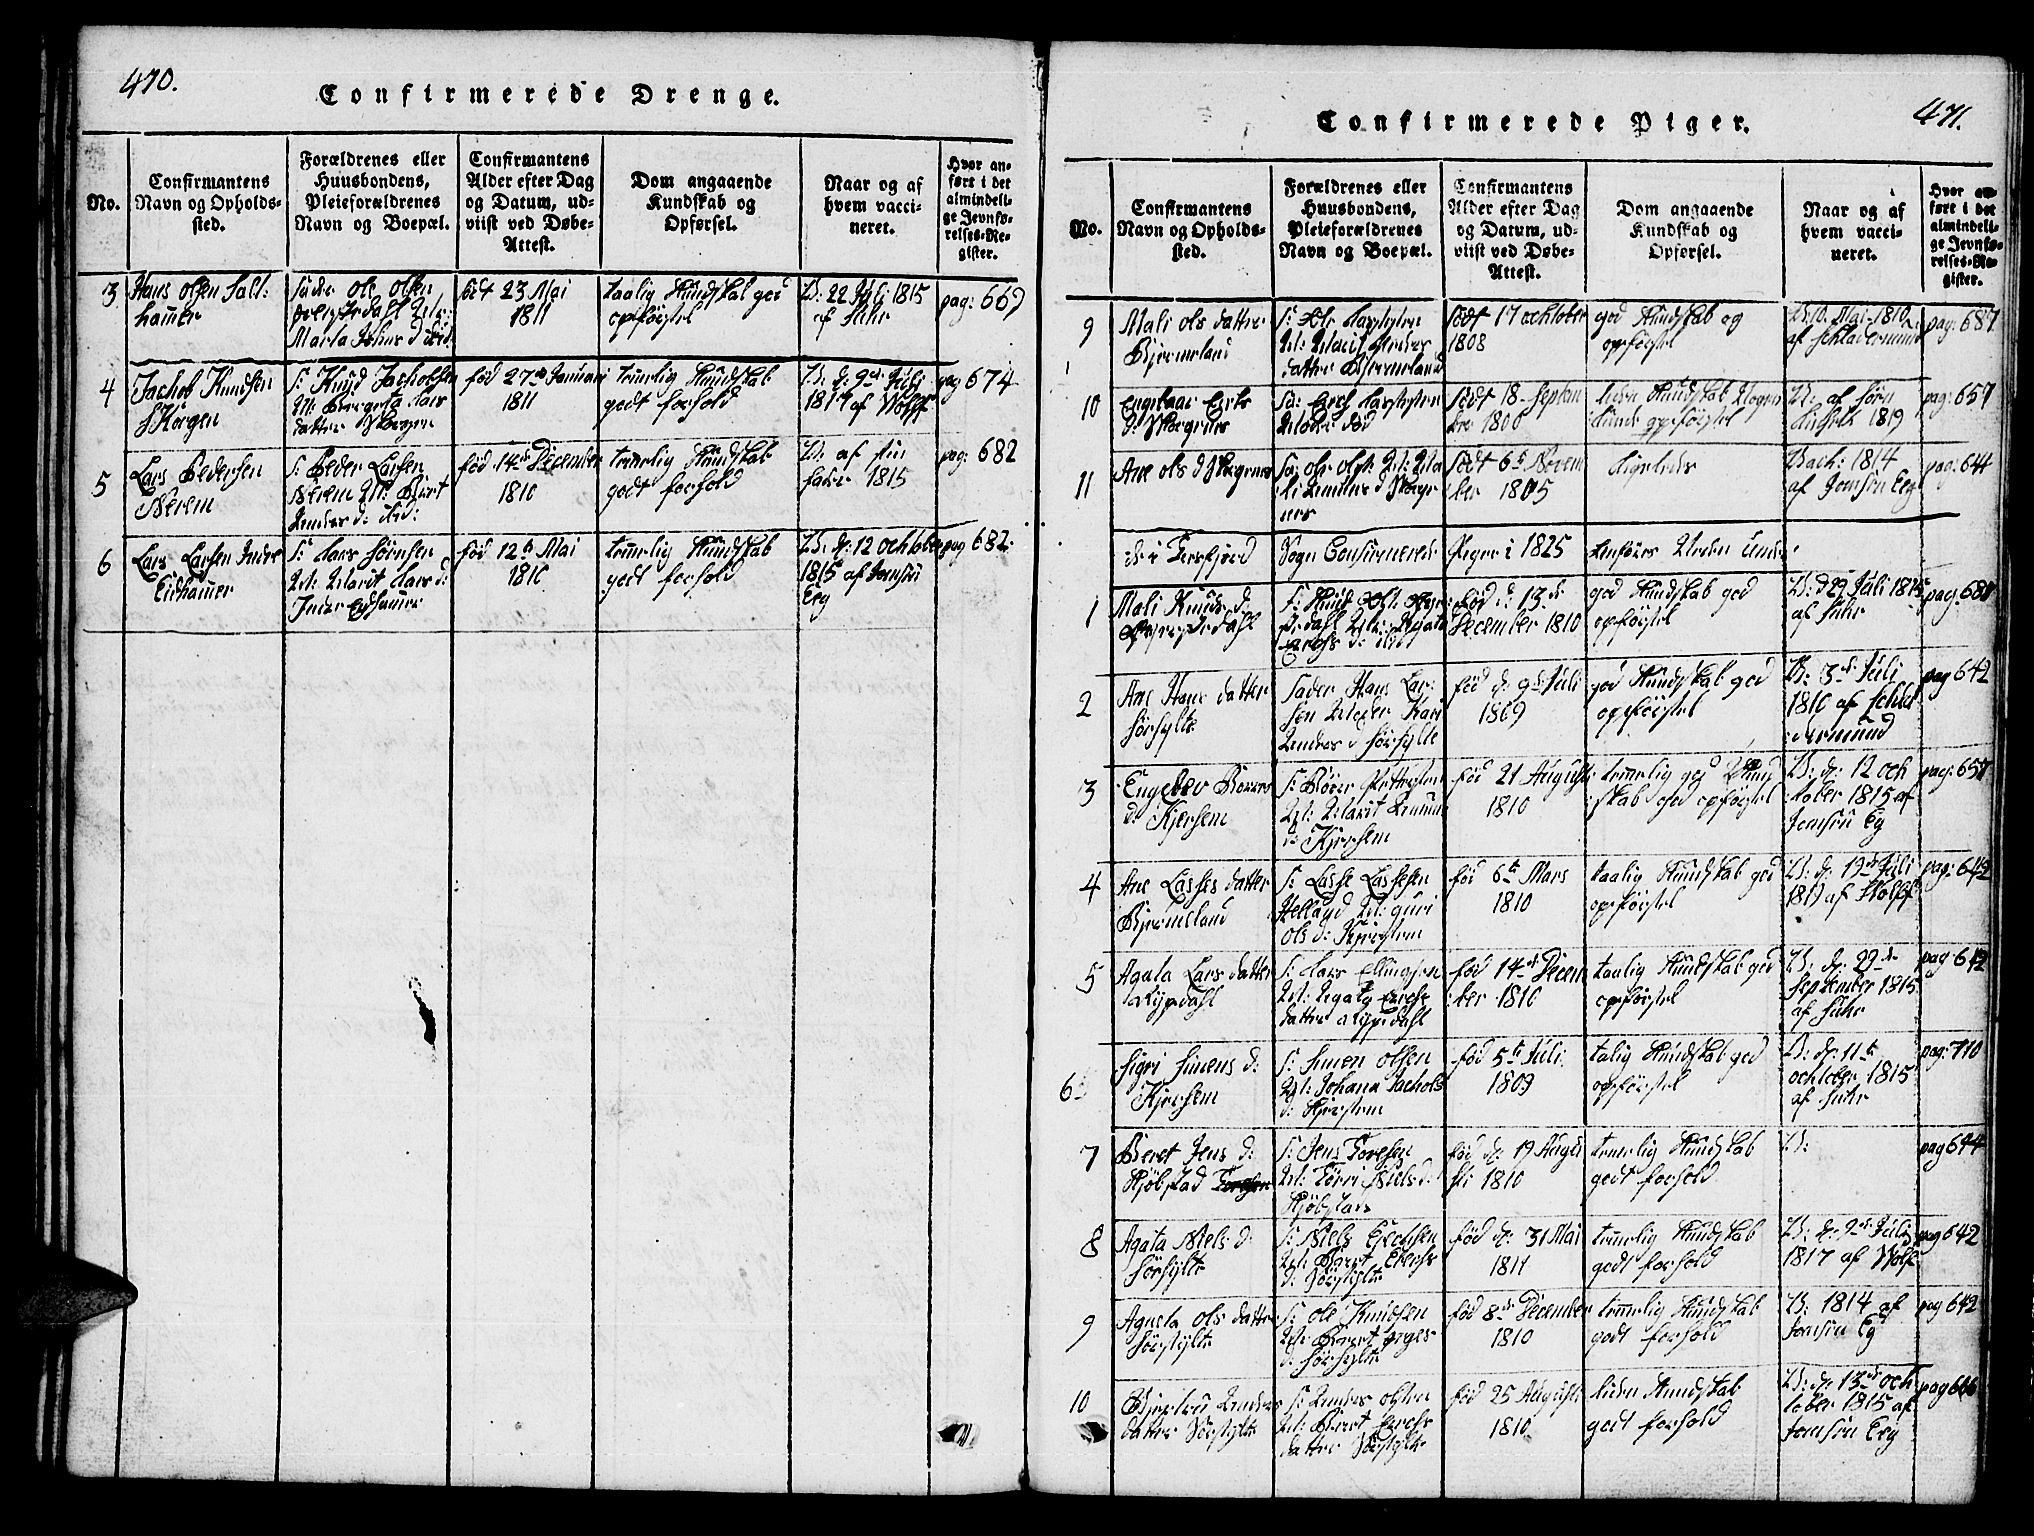 470.
Confirmerede Drenge.
No.
Confirmantens
Navn og Opholds-
sted.
Forældrenes eller
Huusbondens,
Pleieforældrenes
Navn og Boepæl.
Confirmantens
Alder efter Dag
og Datum, ud-
viist ved Døbe-
Attest.
Dom angaaende
Kundskab og
Opførsel.
Naar og af
hvem vacci-
neret.
Hvor an-
ført i det
almindeli-
ge Jevnfø-
relses-Re-
gister.
3
Hans Olsen Salt:
hammer
Fader Ole Olsen
M:
Marta
født 23 Mai
1811
taalig Kundskab god
opførsel
V: 22 Juli 1815
af Suhr
pag: 669
4
Jachob Knudsen
Skorgen
F: Knud Jachobsen
M: Lars
datter Skorgen
fød 27de Januari
1811
temelig Kundskab
godt forhold
V: d: 9de Juli
1817 af Wolff
pag 674
5
Lars Pedersen
Nerem
F: Peder Larsen
Nerem M: Beret
Anders d: ibid:
fød 14de December
1810
temelig Kundskab
godt forhold
V: af sin
fader 1815
pag: 682
6
Lars Larsen Indre
Eidhamer
F: Lars Sørensen
M: Marit Lars d:
Indre Eidhamer
fød 12te Mai
1810
temelig Kundskab
godt forhold
V: d: 12 october
1815 af Jonsen
Eeg
pag 682
471.
Confirmerede Piger.
No.
Confirmantens
Navn og Opholds-
sted.
Forældrenes eller
Huusbondens,
Pleieforældrenes
Navn og Boepæl.
Confirmantens
Alder efter Dag
og Datum, ud-
viist ved Døbe-
Attest.
Dom angaaende
Kundskab og
Opførsel.
Naar og af
hvem vacci-
neret.
Hvor an-
ført i det
almindeli-
ge Jevnfø-
relses-Re-
gister.
9
Mali Ols datter
Bjermeland
F: Ole
M: Marit Peders
datter Bjermeland
Født 17 ochtober
1808
god Kundskab og
opførsel
V: 10 Mai 1810
af
pag: 687
10
d: Skorgenes
Moder død
Født 18 Septem
ber 1806
liden Kundskab
opførsel
V: af Sørn
1819
pag: 657
11
Ane Ols d Skorgenes
Fa: Ole Ols: M: Ma
li d Skorge
nes
Født 6te Novem
ber 1805
ligeledes
Vach: 1814
af Jonsen Eeg
pag: 644
de i
Sogn Confirmerede
Piger i 1825
anføres Neden under
1
Mali Knuds d
F: Knud
M: Agata
ibid
Fød d: 13de
December 1810
god Kundskab god
opførsel
V: d 29 Juli 1815
af Suhr
pag: 681
2
Ane Hans datter
Sørsylte
Fader Hans Lar-
sen Moder Kari
Anders d Sørsylte
fød d: 9de Juli
1809
god Kundskab god
opførsel
V: 3de Juli
1810 af
pag 642
3
d: Kjersem
F: Børre
M: Marit
d: Kjersem
fød 21 August
1810
temelig god Kund
skab god opførsel
V: d: 12 och
tober 1815 af
Jonsen Eg
pag: 657
4
Ane Lasses datter
Bjermeland
F: Lasse Lassesen
Helland M: guri
Ols d: Kjersem
fød 6te Mars
1810
taalig Kundskab god
opførsel
V: d: 19de Juli
1817 af Wolff
pag: 642
5
Agata Lars datter
Rypdahl
F: Lars Ellingsen
M: Agata Erichs
datter Rypdahl
fød 14de Decem
ber 1810
taalig Kundskab god
opførsel
V: d: 22de
September 1815
af Suhr
pag 642
6
Sigri Simens d:
Kjersem
F: Simen Olsen
M: Johana Jachobs
d: Kjersem
fød 5te Juli
1809
talig Kundskab god
opførsel
V: d: 11te
october 1815
af Suhr
pag: 710
7
Beret Jens d:
Kjøbstad
F: Jens Toresen
M: Niels d:
Kjøbstad
fød d: 19 Augu
sti 1810
temelig Kundskab
godt forhold
V:
pag 644
8
Agata Niels d:
Sørsylte
F: Niels Erichsen
M: Beret Erichs
d: Sørsylte
fød d: 31 Mai
1811
temelig Kundskab
godt forhold
V: d: 9de Juli
1817 af Wolf
pag 642
9
Agneta Ols datter
Sørsylte
F: Ole Knudsen
M: Beret
d: Sørsylte
fød 8de December
1810
temelig Kundskab
godt forhold
V: 1814 af
Jonsen Eg
pag 642
10
Anders
datter Sørsylte
F: Anders Olsen
M: Beret Erichs
datter Sørsylte
fød 25 Augusti
1810
liden Kundskab
godt forhold
V: d: 13de och
tober 1815 af
Jonsen Eeg
pag 646